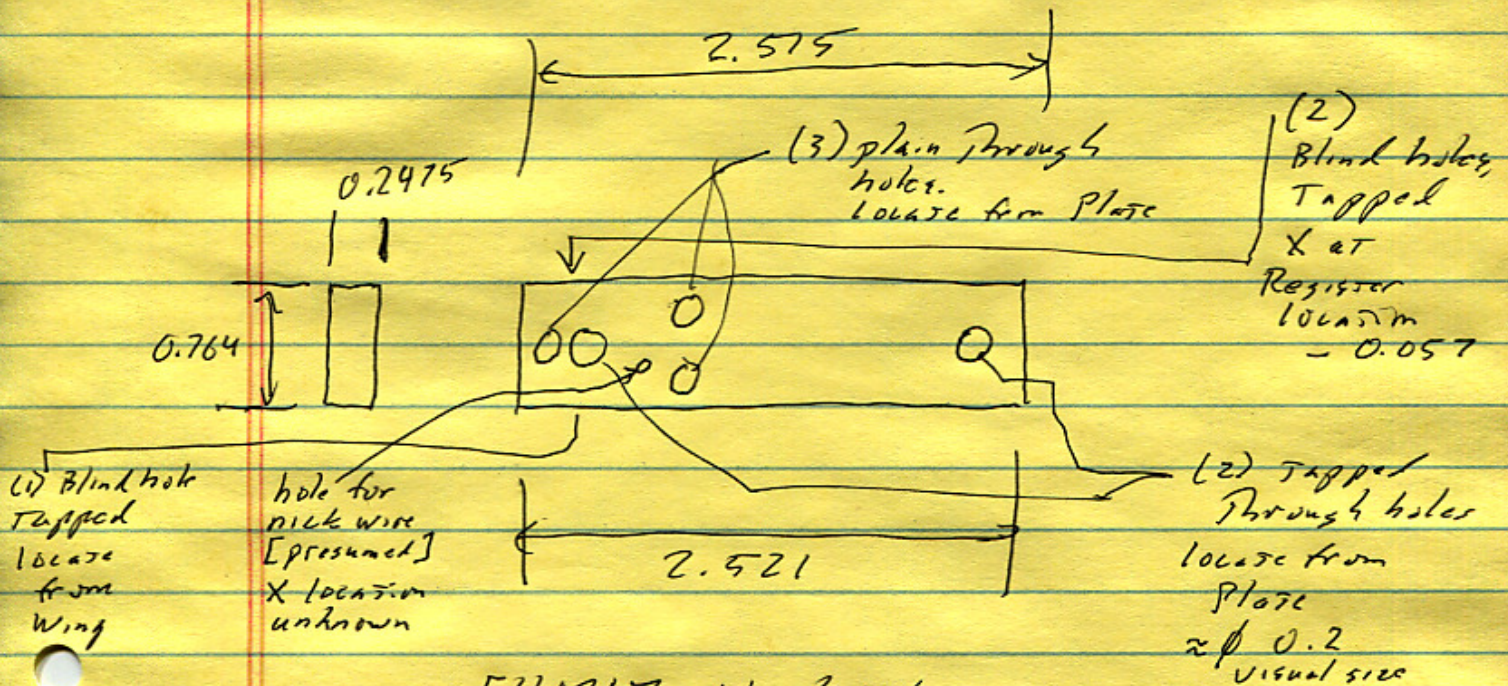 2.575
(3) plain Through
holes.
locate from Plate
(2)
Blind holes,
Tapped
X at
Register
location
- 0.057
0.2475
0.764
(1) Blind hole
Tapped
locate
from
Wing
hole for
nick wire
[presumed]
X location
unknown
2.521
(2) Tapped
Through holes
locate from
Plate
≈ φ 0.2
visual size